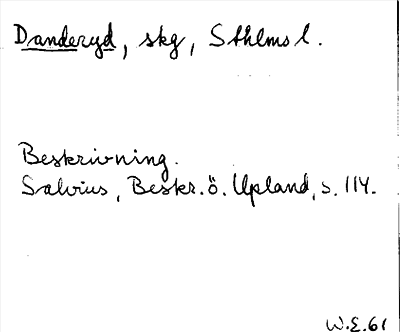 Danderyd, skg, Sthlms l.
Beskrivning.
Salvius, Beskr. ö. Upland, s. 114.
W.E. 61